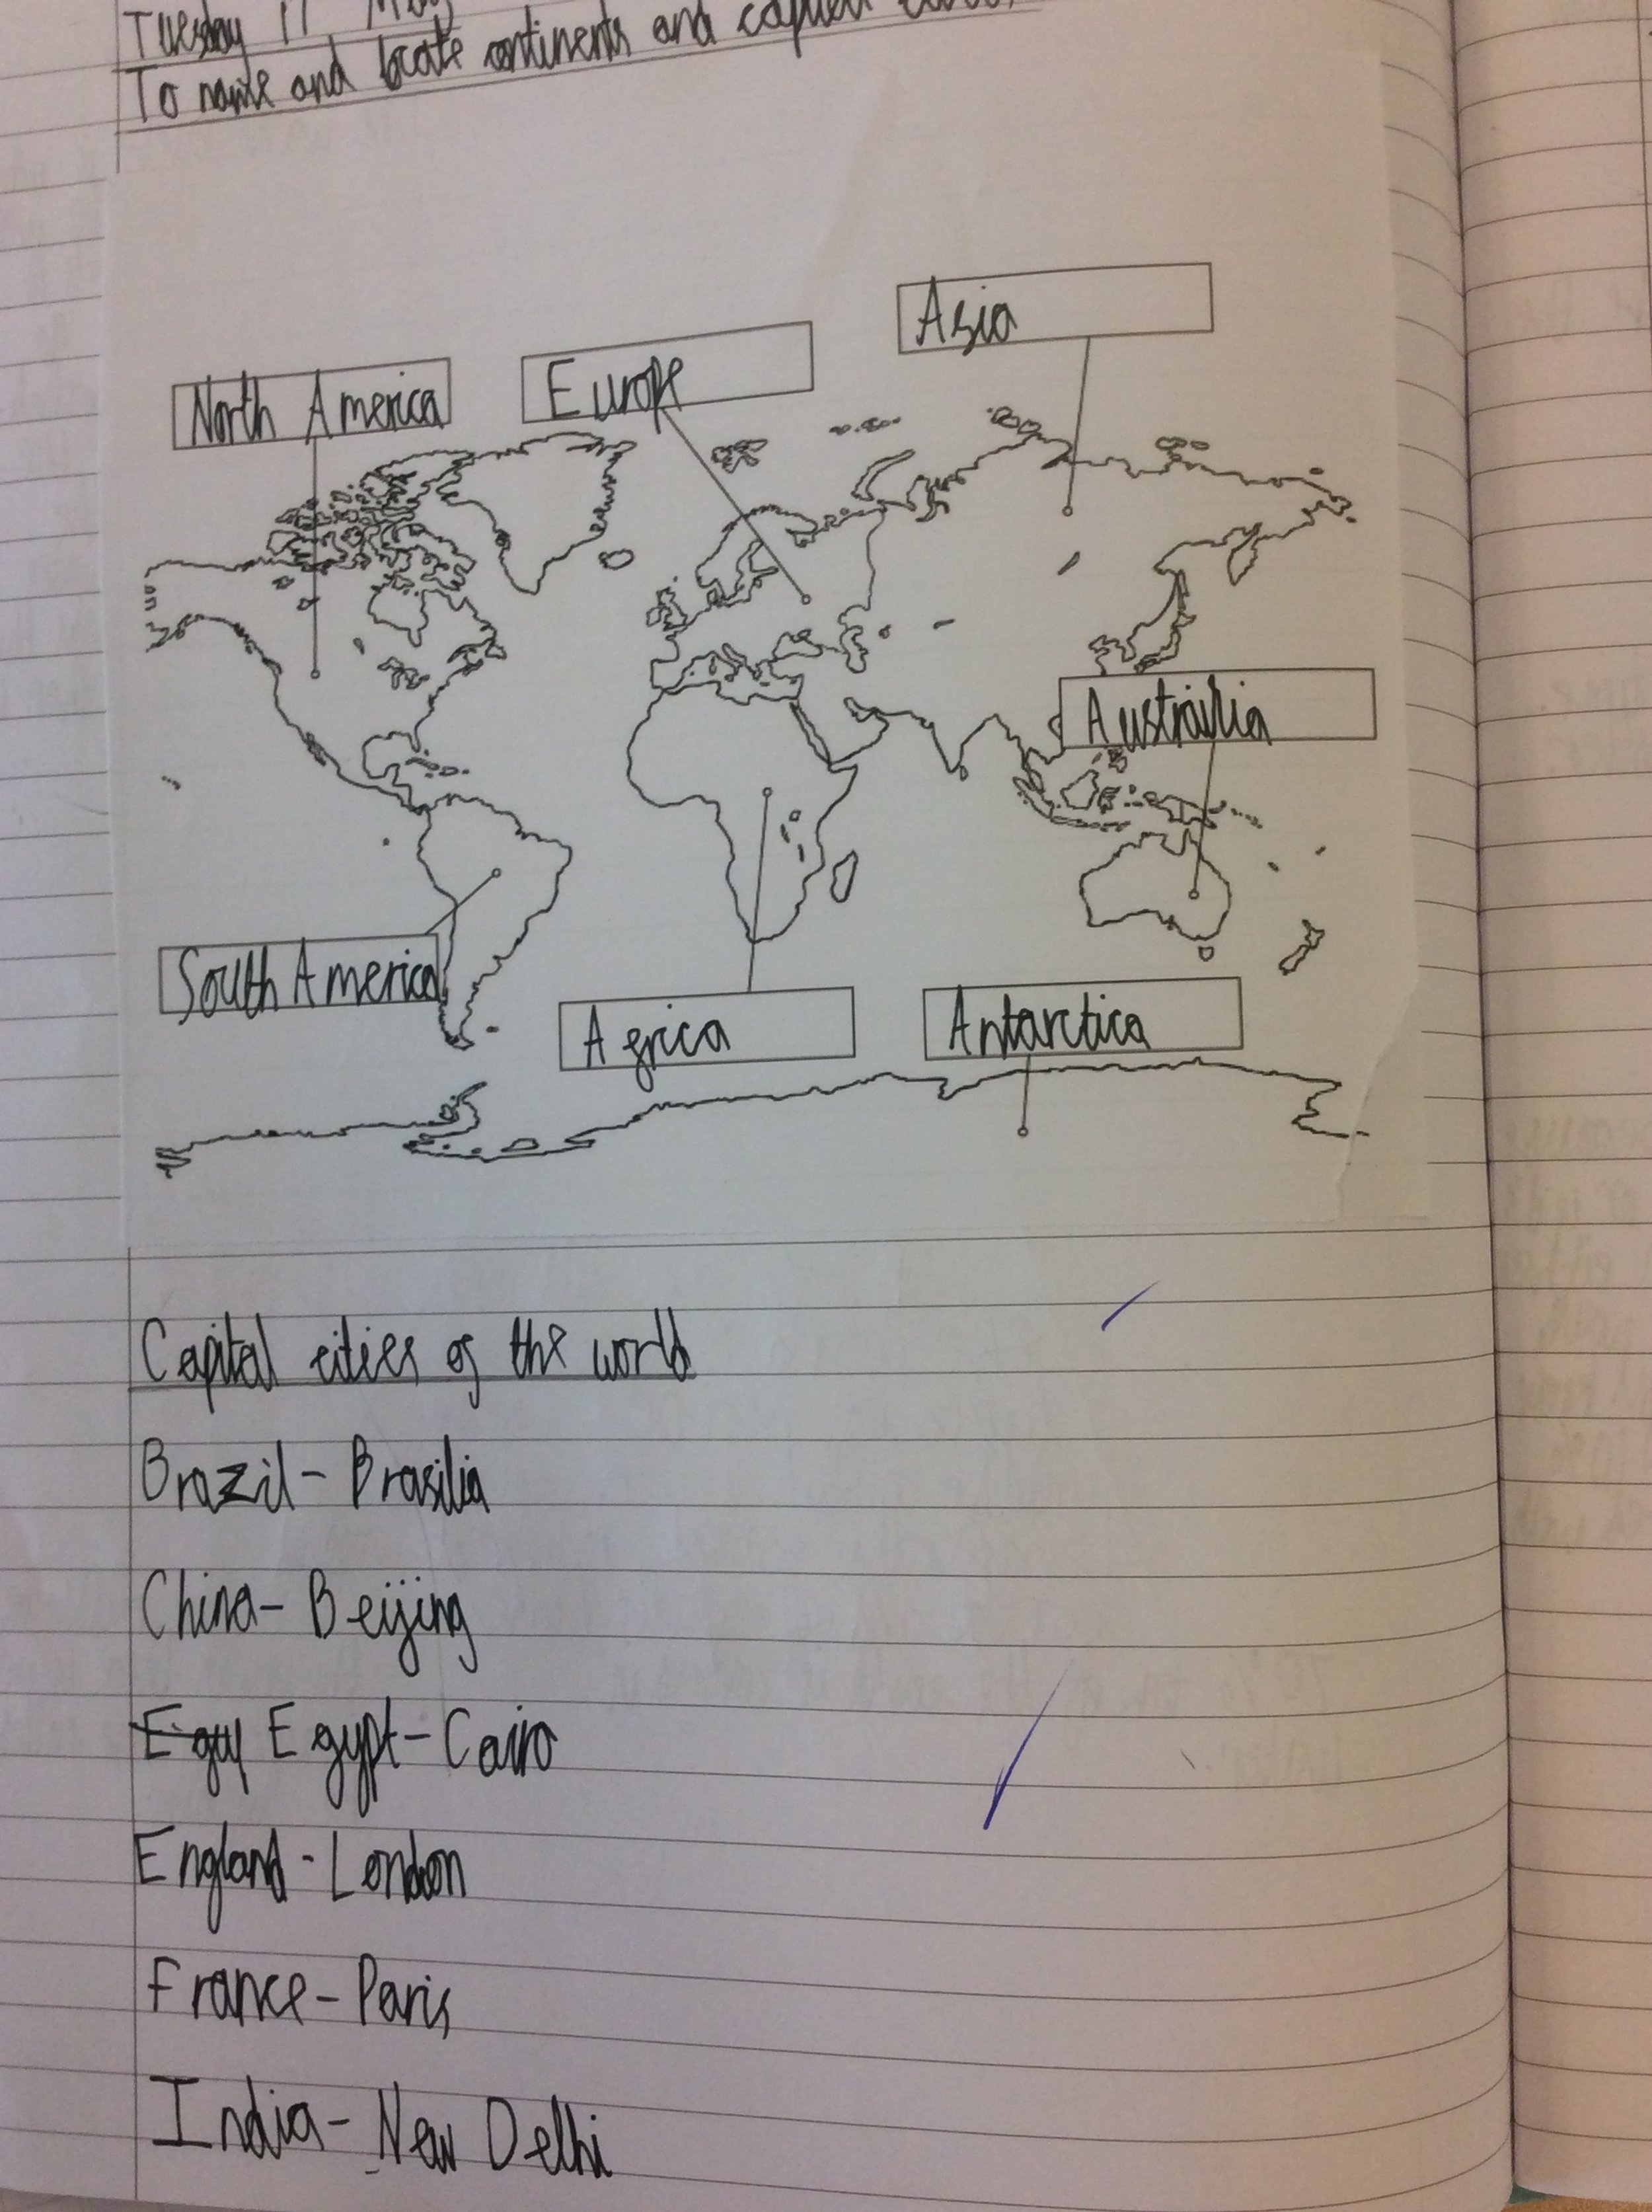 Tuesday 11 May
To name and locate continents and capital
Asia
North America
Europe
Austrailia
South America
Africa
Antarctica
Capital cities of the world
Brazil - Brasilia
China - Beijing
Egy Egypt - Cairo
England - London
France - Paris
India - New Delhi